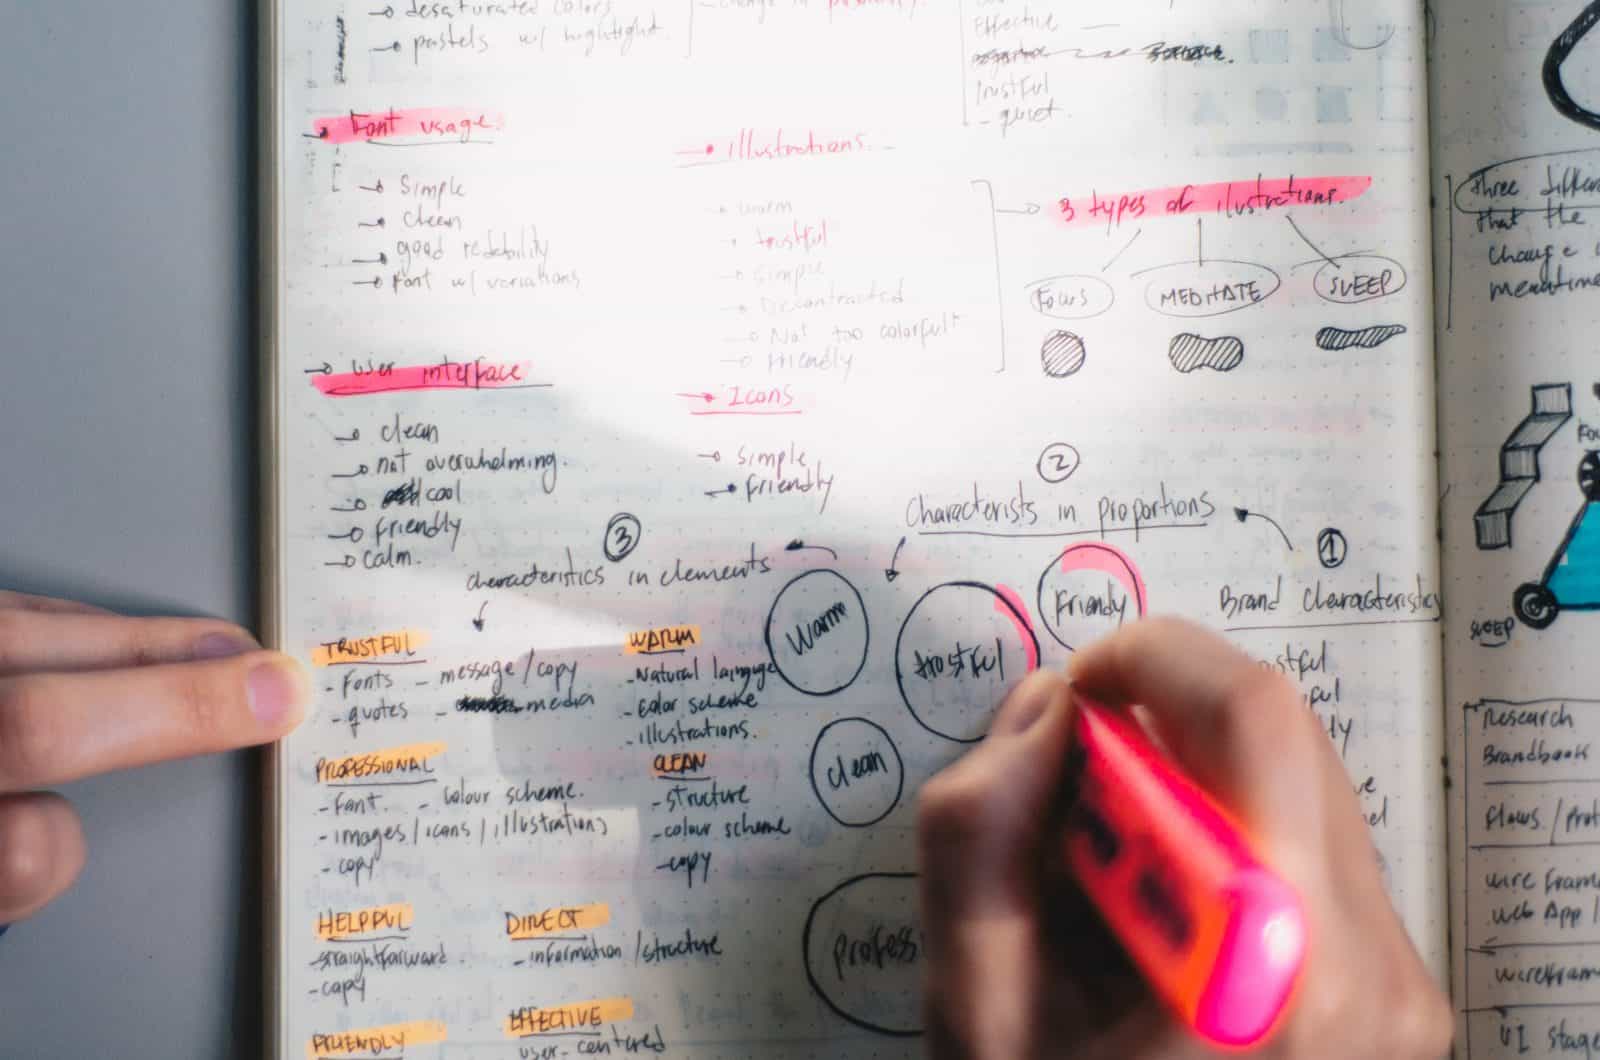 desaturated colors
pastels w/ hightlight.
Effective
trustful
- quiet.
Font usage.
Simple
Clean
good redability
Font w/ variations
User interface
clean
not overwhelming.
cool
Friendly
Calm.
Illustrations.
warm
trustful
Simple
Decontracted
Not too colorfull
friendly
Icons
Simple
Friendly
3 types of ilustrations.
Focus
MEDITATE
SLEEP
1
Brand characteristics
2
Characterists in proportions
3
characteristics in elements
Warm
trostful
Friendy
clean
TRUSTFUL
- Fonts - message/copy
- quotes - media
PROFESSIONAL
- Font. - Colour scheme.
- images/icons/illustrations
- copy
HELPFUL
- straightforward.
- copy
FRIENDLY
WARM
- Natural language
- Color scheme
- illustrations.
CLEAN
- structure
- colour scheme
- copy
DIRECT
- information/structure
EFFECTIVE
user-centured
three
that the
change
meantime
SLEEP
Research
Brandbook
Flows/
wire
Web App/
UI